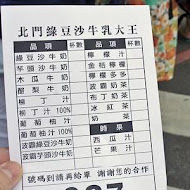 北門綠豆沙牛乳大王
品項 杯數 品項 杯數
綠豆沙牛奶 檸檬汁
芋頭沙牛奶 金桔檸檬
木瓜牛奶 檸檬多多
酪梨牛奶 波霸奶茶
柳丁汁 布丁奶茶
柳丁牛奶 冰紅茶
葡萄柚汁 奶茶
葡萄柚汁100% 時果
波霸綠豆沙牛奶 西瓜汁
波霸芋頭沙牛奶 芒果汁
號碼到請再給單 謝謝您的合作